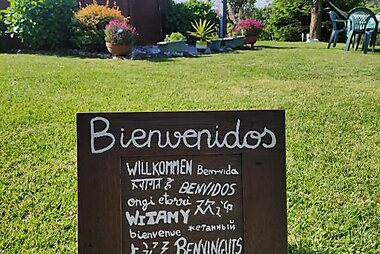 Bienvenidos
WILLKOMMEN Benvida
स्वागत है BENVIDOS
ongi etorri
WITAMY
bienvenue желанный
ようこそ BENVINGUTS